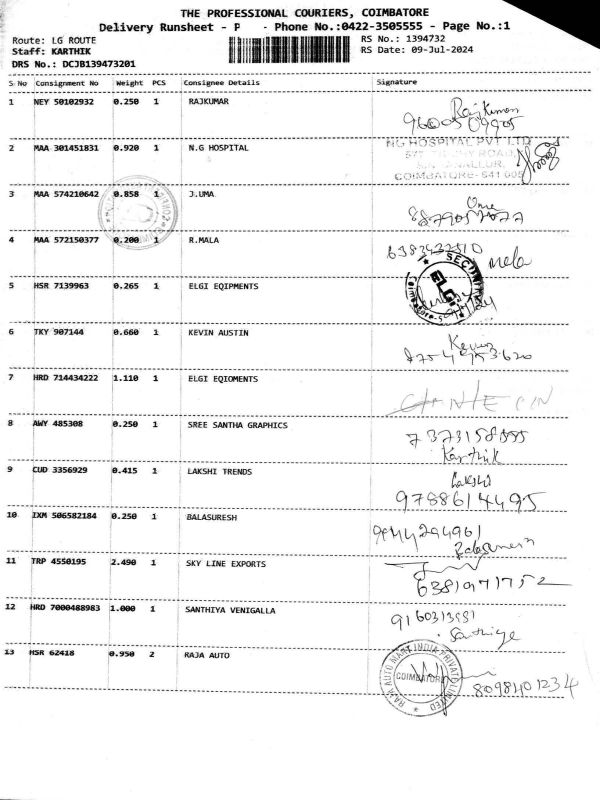 THE PROFESSIONAL COURIERS, COIMBATORE
Delivery Runsheet - P - Phone No.:0422-3505555 - Page No.:1
Route: LG ROUTE
RS No.: 1394732
Staff: KARTHIK
RS Date: 09-Jul-2024
DRS No.: DCJB139473201
S No Consignment No Weight PCS Consignee Details Signature
1 NEY 50102932 0.250 1 RAJKUMAR Rajkumar
2 MAA 301451831 0.920 1 N.G HOSPITAL
NG HOSPITAL PVT LTD
COIMBATORE - 641 005
3 MAA 574210642 0.858 1 J.UMA Uma
4 MAA 572150377 0.200 1 R.MALA 6383432510
Mala
5 HSR 7139963 0.265 1 ELGI EQIPMENTS
SECURITY
ELGI
6 TKY 907144 0.660 1 KEVIN AUSTIN Kevin
8754953620
7 HRD 714434222 1.110 1 ELGI EQIOMENTS
8 AWY 485308 0.250 1 SREE SANTHA GRAPHICS 7373158555
Karthik
9 CUD 3356929 0.415 1 LAKSHI TRENDS Lakshi
9788614495
10 IXM 506582184 0.250 1 BALASURESH
11 TRP 4550195 2.490 1 SKY LINE EXPORTS
6381971752
12 HRD 7000488983 1.000 1 SANTHIYA VENIGALLA
Santhiya
13 HSR 62418 0.950 2 RAJA AUTO
RAJA AUTO MART INDIA PRIVATE LIMITED
COIMBATORE
8098401234